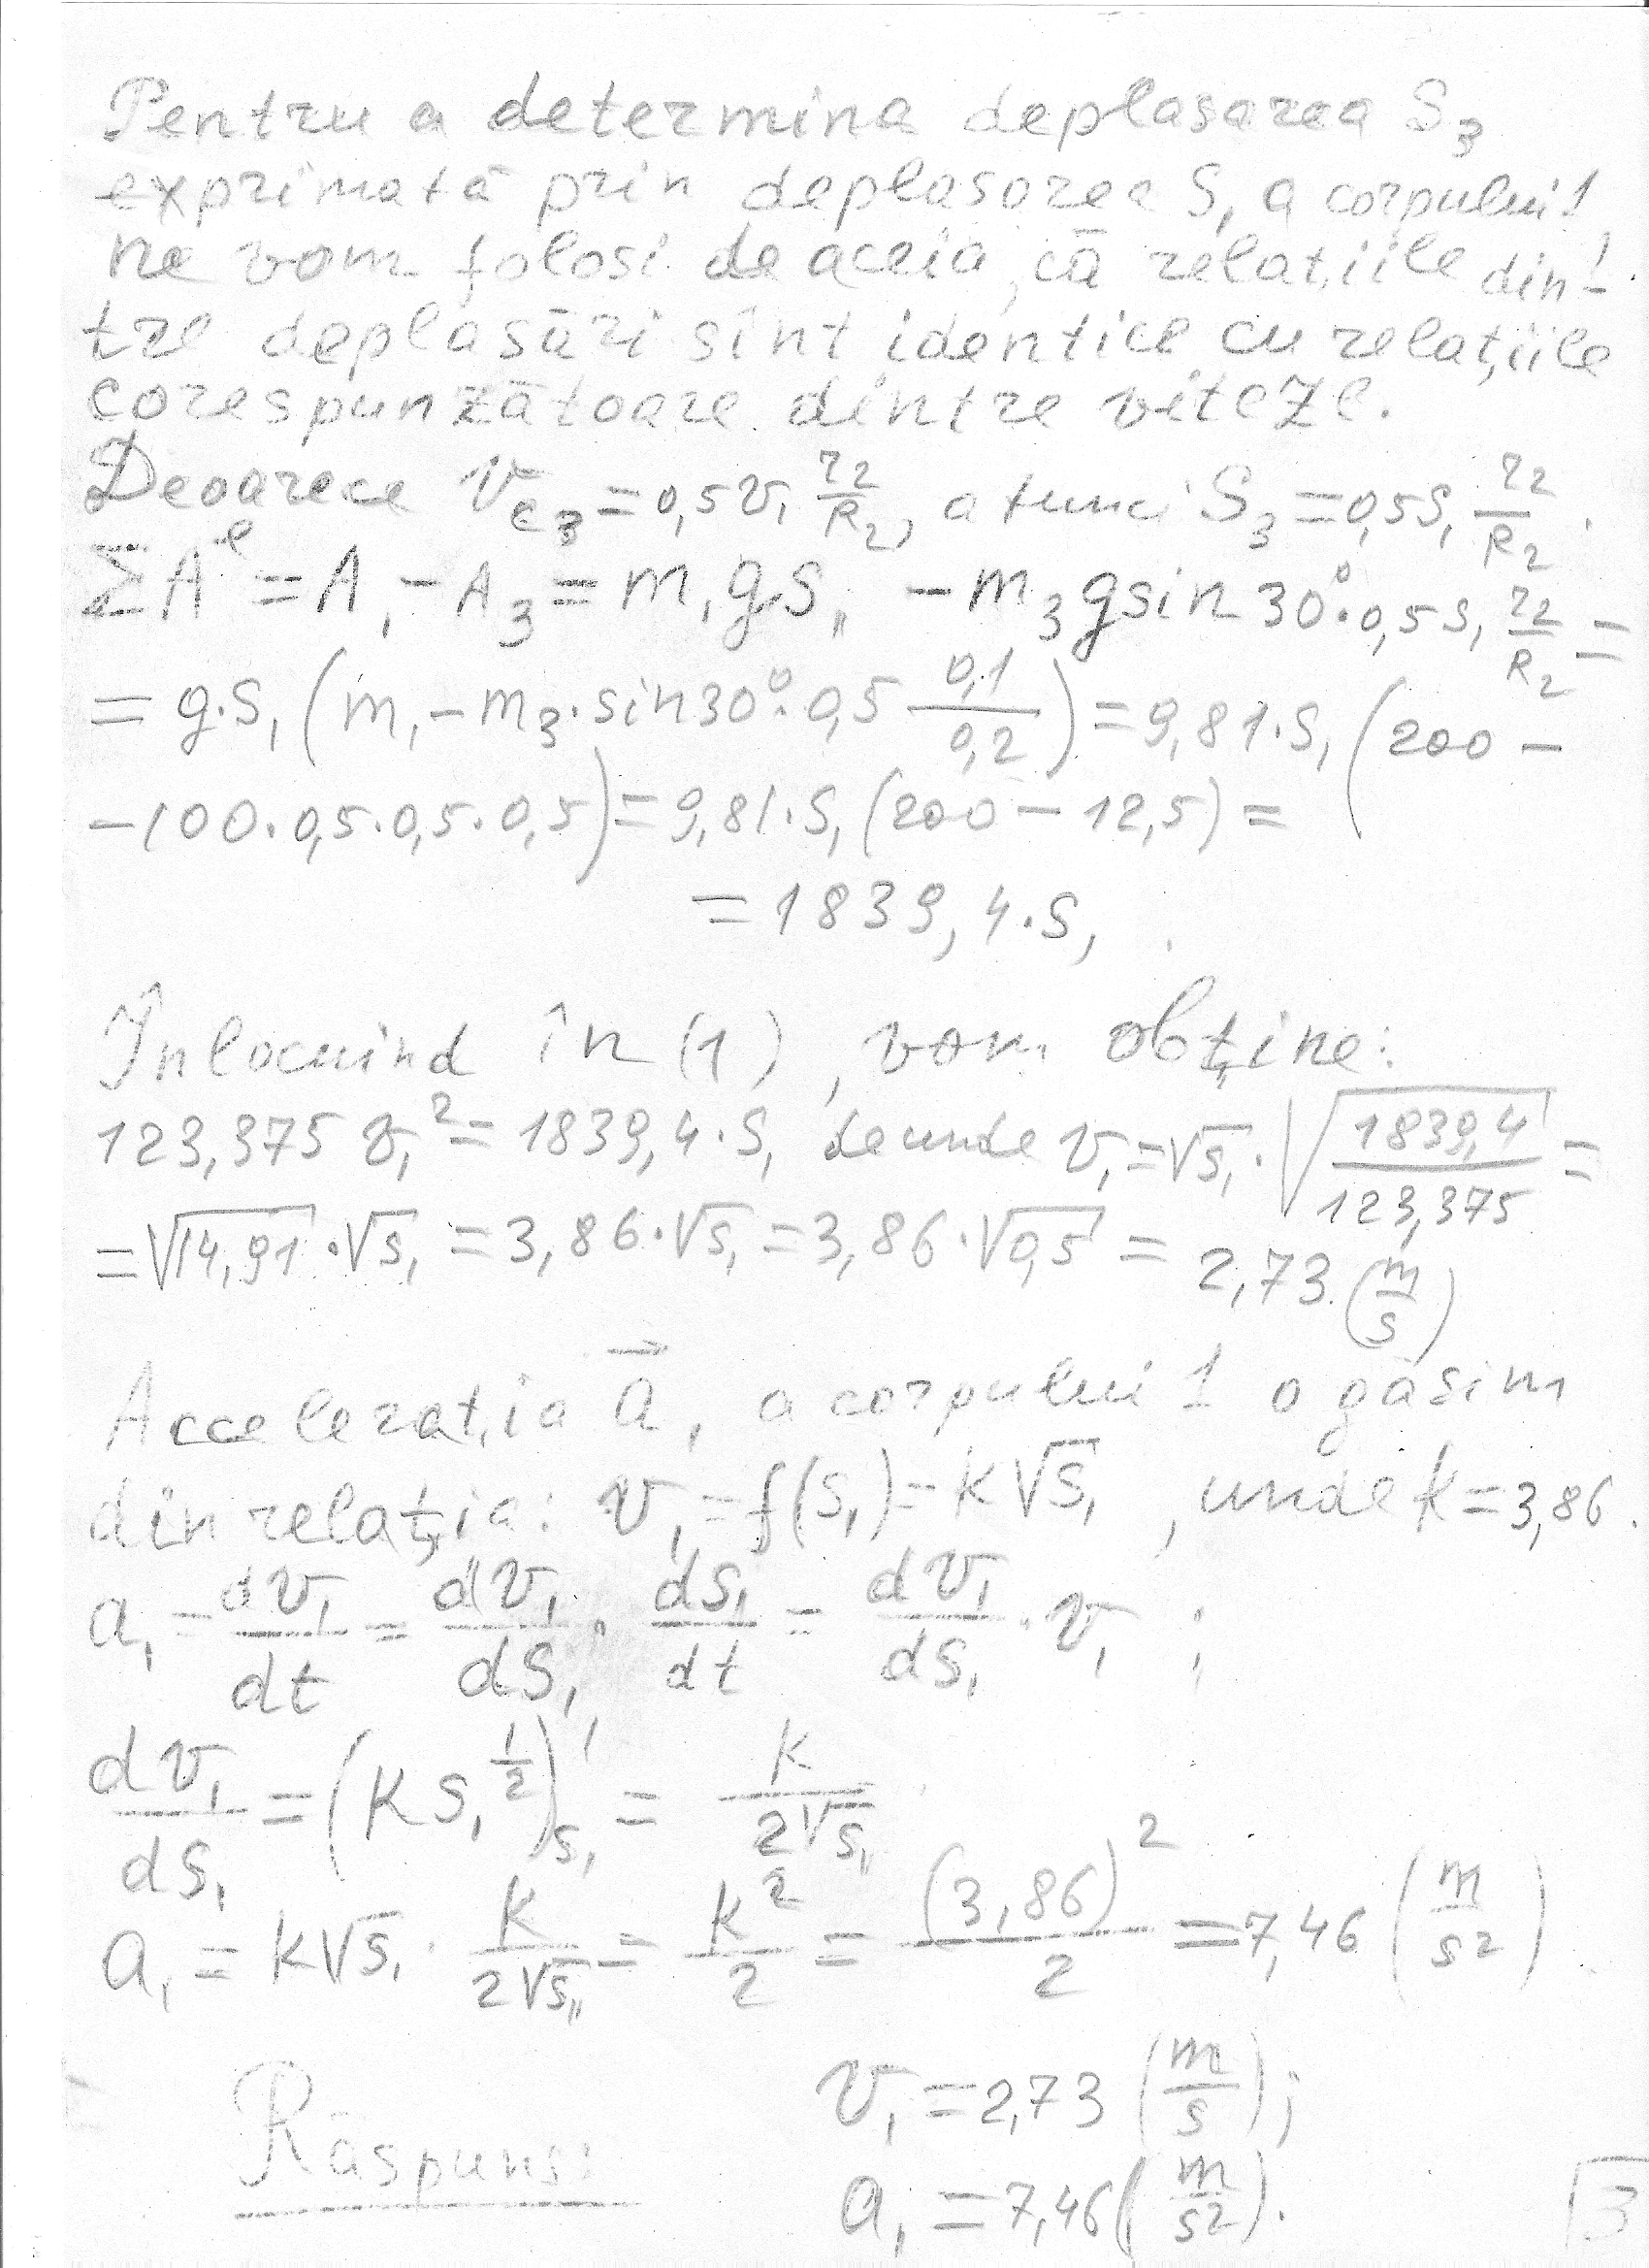 Pentru a determina deplasarea S₃
exprimată prin deplasarea S₁ a corpului 1
ne vom folosi de aceia, că relațiile din-
tre deplasări sînt identice cu relațiile
corespunzătoare dintre viteze.
Deoarece v_c₃ = 0,5 v₁ r₂/R₂, atunci S₃ = 0,5 S₁ r₂/R₂.
ΣA^e = A₁ - A₃ = m₁gS₁ - m₃g sin 30°·0,5 S₁ r₂/R₂ =
= g·S₁ (m₁ - m₃·sin 30°·0,5 0,1/0,2) = 9,81·S₁ (200 -
- 100·0,5·0,5·0,5) = 9,81·S₁ (200 - 12,5) =
= 1839,4·S₁.
Înlocuind în (1), vom obține:
123,375 v₁² = 1839,4·S₁ de unde v₁ = √S₁ · √(1839,4/123,375) =
= √14,91 · √S₁ = 3,86·√S₁ = 3,86·√0,5 = 2,73 (m/s)
Accelerația a⃗₁ a corpului 1 o găsim
din relația: v₁ = f(S₁) = k√S₁, unde k = 3,86.
a₁ = dv₁/dt = dv₁/dS₁ · dS₁/dt = dv₁/dS₁ · v₁;
dv₁/dS₁ = (K S₁^(1/2))'_S₁ = K/(2√S₁)
a₁ = K√S₁ · K/(2√S₁) = K²/2 = (3,86)²/2 = 7,46 (m/s²)
v₁ = 2,73 (m/s);
Răspuns:
a₁ = 7,46 (m/s²).
3